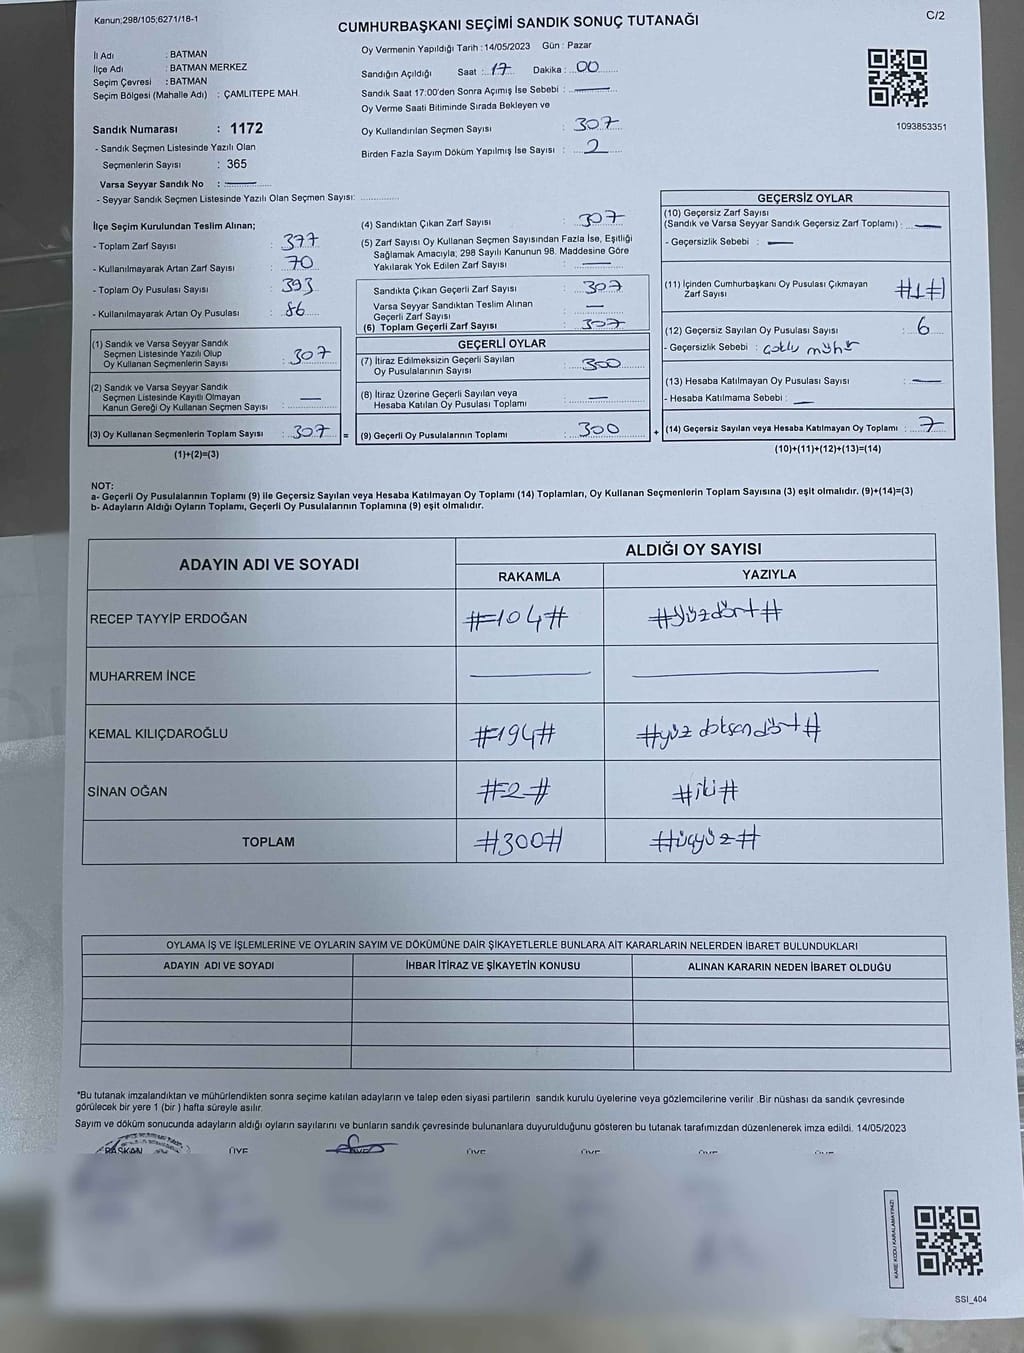 Kanun;298/105;6271/18-1
C/2
CUMHURBAŞKANI SEÇİMİ SANDIK SONUÇ TUTANAĞI
İl Adı : BATMAN
İlçe Adı : BATMAN MERKEZ
Seçim Çevresi : BATMAN
Seçim Bölgesi (Mahalle Adı) : ÇAMLITEPE MAH.
Sandık Numarası : 1172
- Sandık Seçmen Listesinde Yazılı Olan
Seçmenlerin Sayısı : 365
Varsa Seyyar Sandık No :
- Seyyar Sandık Seçmen Listesinde Yazılı Olan Seçmen Sayısı:
Oy Vermenin Yapıldığı Tarih : 14/05/2023 Gün : Pazar
Sandığın Açıldığı Saat : 17 Dakika : 00
Sandık Saat 17:00'den Sonra Açımış İse Sebebi :
Oy Verme Saati Bitiminde Sırada Bekleyen ve
Oy Kullandırılan Seçmen Sayısı : 307
Birden Fazla Sayım Döküm Yapılmış İse Sayısı : 2
1093853351
İlçe Seçim Kurulundan Teslim Alınan;
- Toplam Zarf Sayısı : 377
- Kullanılmayarak Artan Zarf Sayısı : 70
- Toplam Oy Pusulası Sayısı : 393
- Kullanılmayarak Artan Oy Pusulası : 86
(1) Sandık ve Varsa Seyyar Sandık
Seçmen Listesinde Yazılı Olup
Oy Kullanan Seçmenlerin Sayısı : 307
(2) Sandık ve Varsa Seyyar Sandık
Seçmen Listesinde Kayıtlı Olmayan
Kanun Gereği Oy Kullanan Seçmen Sayısı : —
(3) Oy Kullanan Seçmenlerin Toplam Sayısı : 307 =
(1)+(2)=(3)
(4) Sandıktan Çıkan Zarf Sayısı : 307
(5) Zarf Sayısı Oy Kullanan Seçmen Sayısından Fazla İse, Eşitliği
Sağlamak Amacıyla; 298 Sayılı Kanunun 98. Maddesine Göre
Yakılarak Yok Edilen Zarf Sayısı : —
Sandıkta Çıkan Geçerli Zarf Sayısı : 307
Varsa Seyyar Sandıktan Teslim Alınan
Geçerli Zarf Sayısı : —
(6) Toplam Geçerli Zarf Sayısı : 307
GEÇERLİ OYLAR
(7) İtiraz Edilmeksizin Geçerli Sayılan
Oy Pusulalarının Sayısı : 300
(8) İtiraz Üzerine Geçerli Sayılan veya
Hesaba Katılan Oy Pusulası Toplamı : —
(9) Geçerli Oy Pusulalarının Toplamı : 300 +
GEÇERSİZ OYLAR
(10) Geçersiz Zarf Sayısı
(Sandık ve Varsa Seyyar Sandık Geçersiz Zarf Toplamı) : —
- Geçersizlik Sebebi : —
(11) İçinden Cumhurbaşkanı Oy Pusulası Çıkmayan
Zarf Sayısı : #1#
(12) Geçersiz Sayılan Oy Pusulası Sayısı : 6
- Geçersizlik Sebebi : Çoklu mühür
(13) Hesaba Katılmayan Oy Pusulası Sayısı : —
- Hesaba Katılmama Sebebi : —
(14) Geçersiz Sayılan veya Hesaba Katılmayan Oy Toplamı : 7
(10)+(11)+(12)+(13)=(14)
NOT:
a- Geçerli Oy Pusulalarının Toplamı (9) ile Geçersiz Sayılan veya Hesaba Katılmayan Oy Toplamı (14) Toplamları, Oy Kullanan Seçmenlerin Toplam Sayısına (3) eşit olmalıdır. (9)+(14)=(3)
b- Adayların Aldığı Oyların Toplamı, Geçerli Oy Pusulalarının Toplamına (9) eşit olmalıdır.
ADAYIN ADI VE SOYADI
ALDIĞI OY SAYISI
RAKAMLA YAZIYLA
RECEP TAYYİP ERDOĞAN #=104# #yüzdört#
MUHARREM İNCE
KEMAL KILIÇDAROĞLU #=194# #yüz doksandört#
SİNAN OĞAN #=2=# #iki#
TOPLAM #300# #üçyüz#
OYLAMA İŞ VE İŞLEMLERİNE VE OYLARIN SAYIM VE DÖKÜMÜNE DAİR ŞİKAYETLERLE BUNLARA AİT KARARLARIN NELERDEN İBARET BULUNDUKLARI
ADAYIN ADI VE SOYADI İHBAR İTİRAZ VE ŞİKAYETİN KONUSU ALINAN KARARIN NEDEN İBARET OLDUĞU
*Bu tutanak imzalandıktan ve mühürlendikten sonra seçime katılan adayların ve talep eden siyasi partilerin sandık kurulu üyelerine veya gözlemcilerine verilir .Bir nüshası da sandık çevresinde
görülecek bir yere 1 (bir ) hafta süreyle asılır.
Sayım ve döküm sonucunda adayların aldığı oyların sayılarını ve bunların sandık çevresinde bulunanlara duyurulduğunu gösteren bu tutanak tarafımızdan düzenlenerek imza edildi. 14/05/2023
BAŞKAN ÜYE ÜYE ÜYE ÜYE ÜYE
KARE KODU KARALAMAYINIZ!
SSI_404